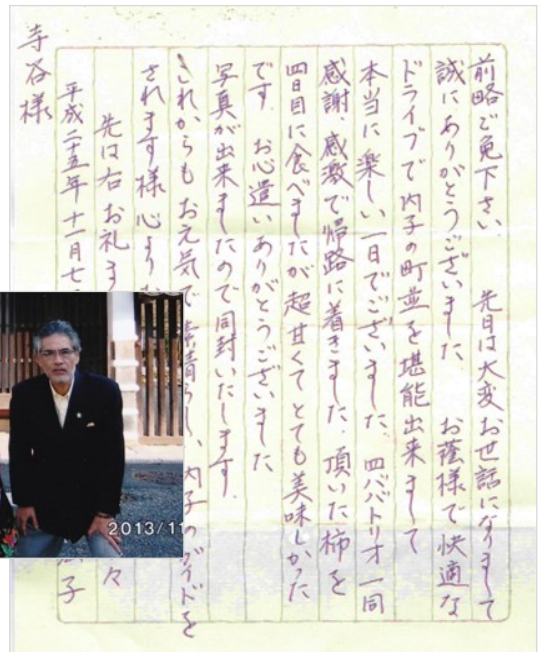 前略ご免下さい 先日は大変お世話になりまして
誠にありがとうございました お蔭様で快適な
ドライブで内子の町並を堪能出来まして
本当に楽しい一日でございました。四ババトリオ一同
感謝、感激で帰路に着きました。頂いた柿を
四日目に食べましたが超甘くてとても美味しかった
です。お心遣いありがとうございました
写真が出来ましたので同封いたします。
これからもお元気で素晴らしい内子のガイドを
されます様心より
先は右お礼まで 々
平成二十五年十一月七 子
寺谷様
2013/11